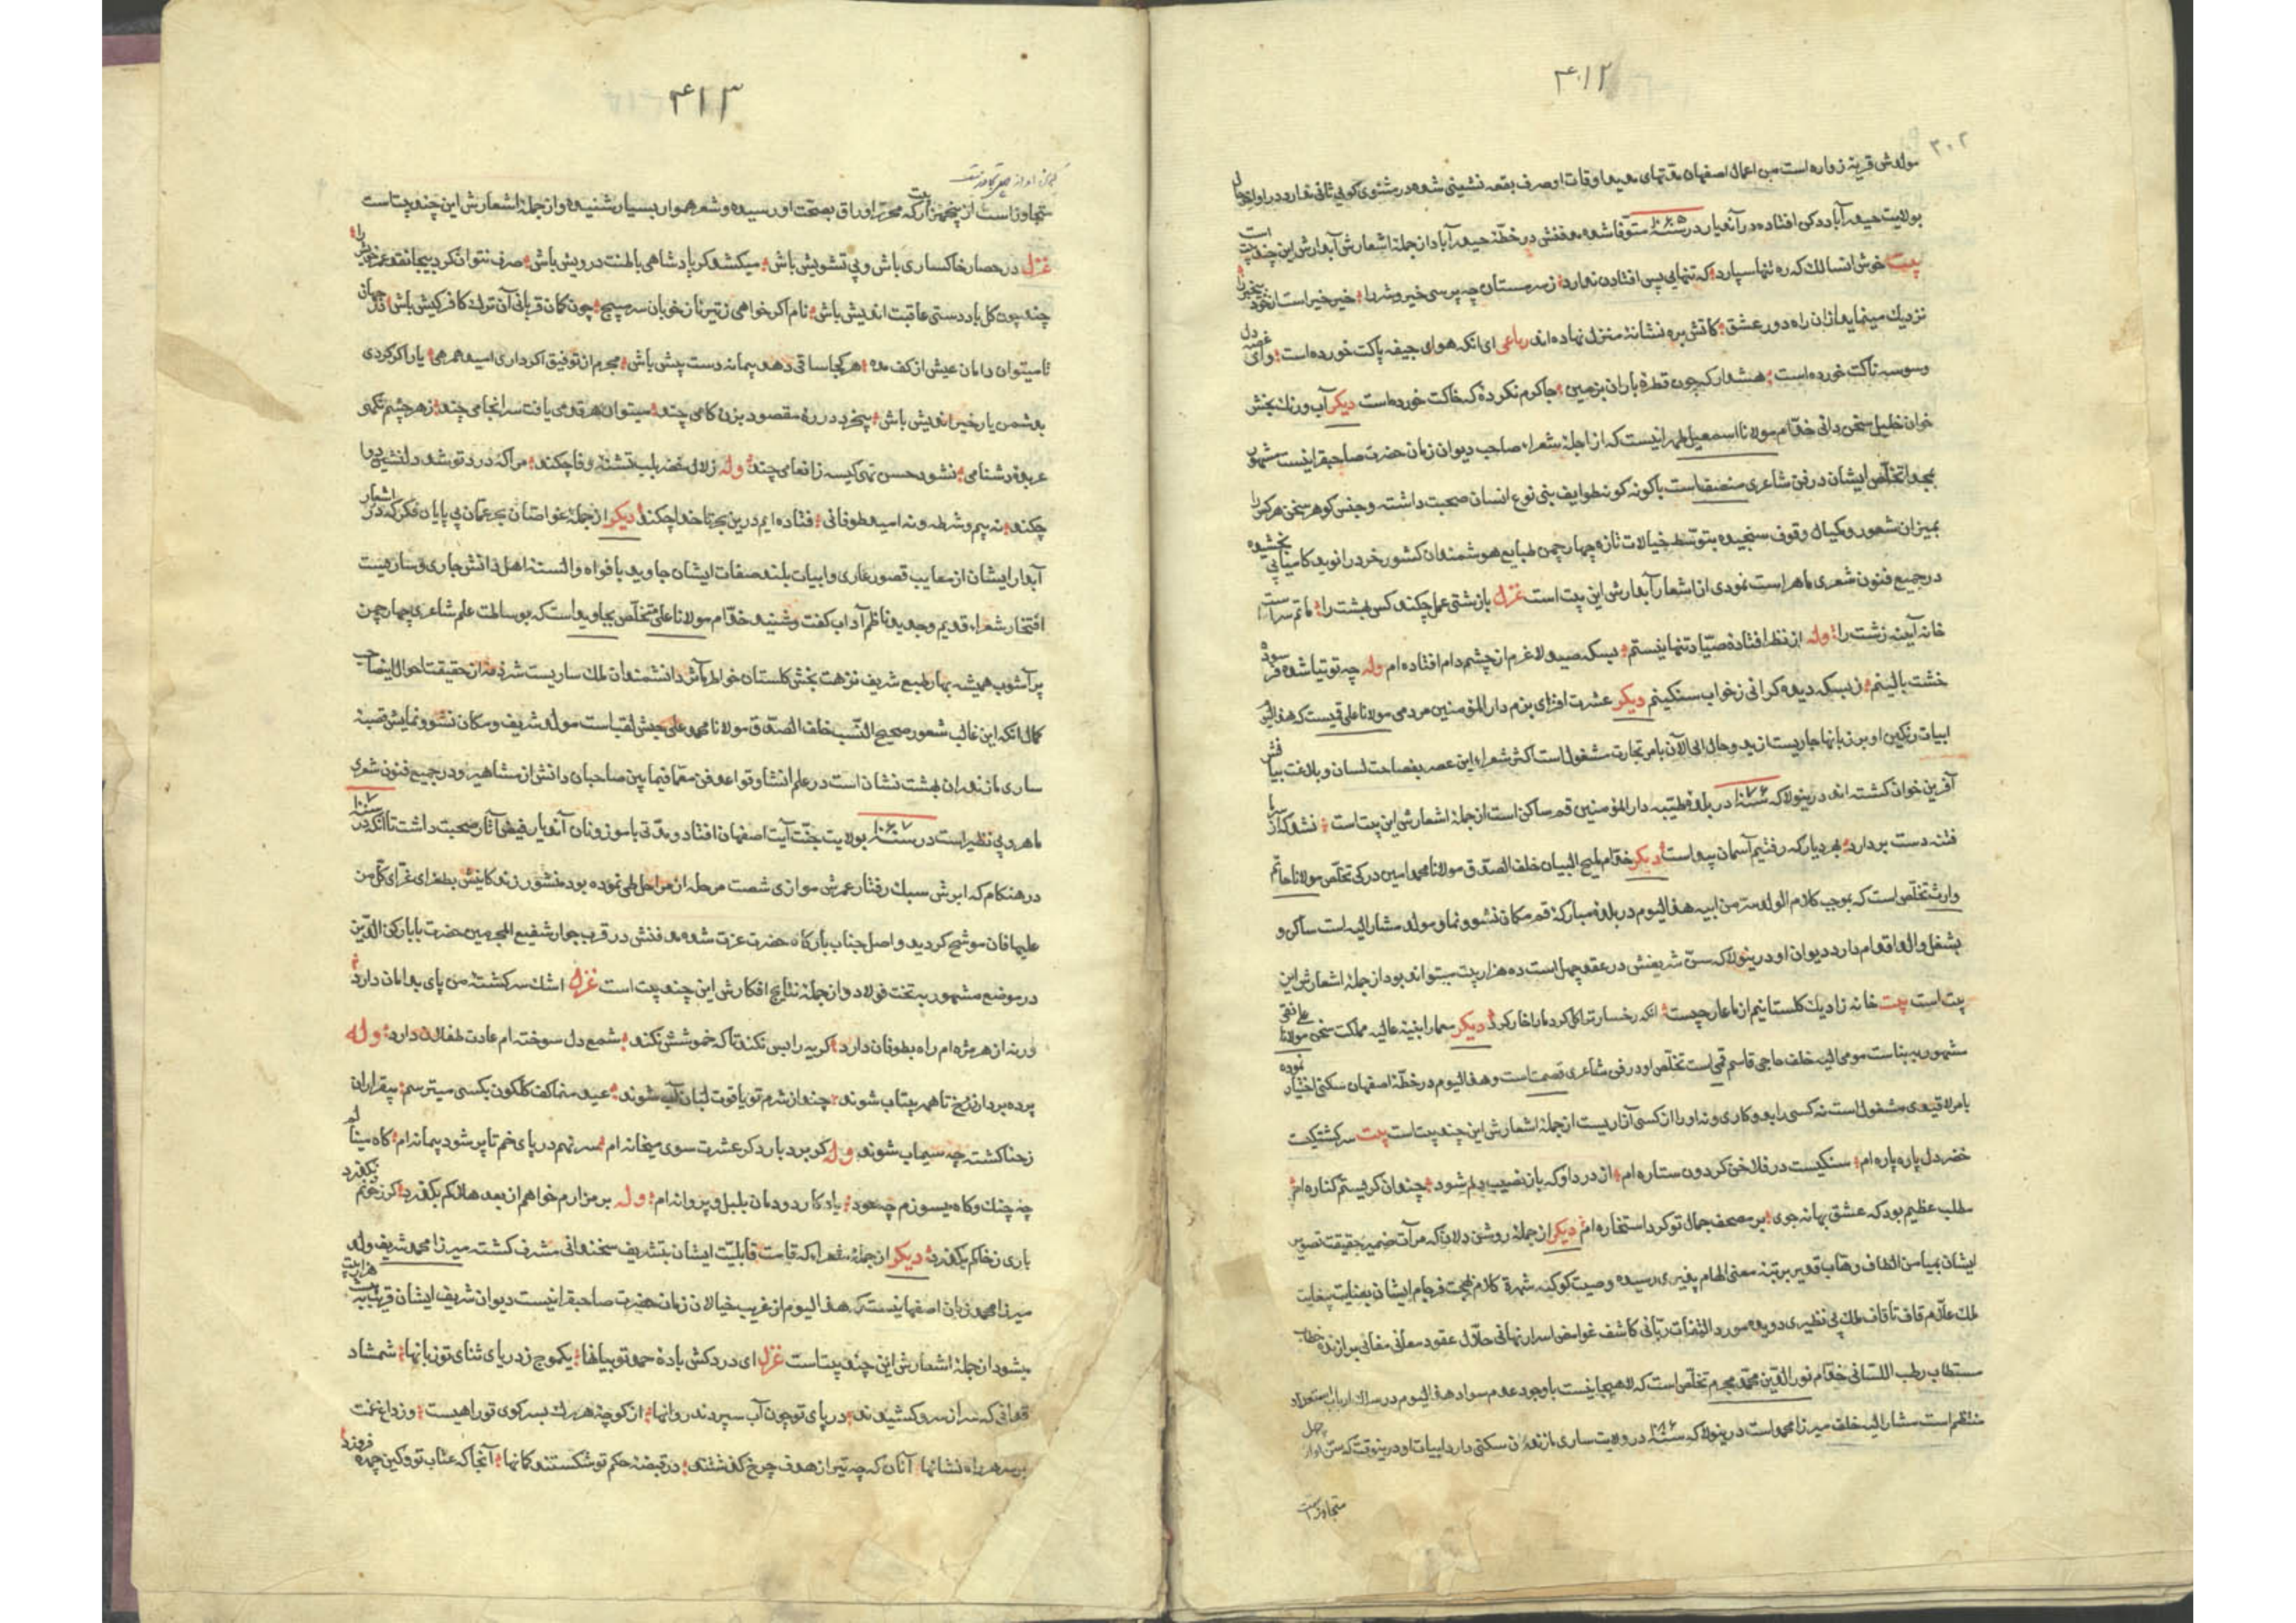 ۴۱۲
۳۰۲
مولدش قریهٔ زواره است من اعمال اصفهان مدتهای مدید اوقات او صرف بقعه نشینی شده در مثنوی کویی ثانی ندارد در اواخر حال
بولایت حیدرآباد دکن افتاده در آندیار در سنهٔ ۱۰۶۵ متوفا شده مدفنش در خطهٔ حیدرآباد از جمله اشعارش آبدارش این چند بیت است
بیت خوش انسالک که ره تنها سپارد که تنهایی پس افتادن ندارد ز سرمستان چه پرسی خیر و شر را خیر خیر است از خود بیخبر را
نزدیک مینماید از ان راه دور عشق کاتش بره نشانهٔ منزل نهاده اند رباعی ای انکه هوای جیفه پاکت خورده است وای دل
وسوسه ناکت خورده است هشدار که چون قطرهٔ باران بزمین جا کرم نکرده که خاکت خورده است دیکر آب و رنک بخش
خوان خلیل سخن دانی خدّام مولانا اسمعیل طهرانیست که از اجلهٔ شعراء صاحب دیوان زمان حضرت صاحبقرانیست مشهور
بمجد اتخلّص ایشان در فن شاعری منصف است با کونه کونه طوایف بنی نوع انسان صحبت داشته و جنس کوهر سخن هر کس را
بمیزان شعور و مکیال وقوف سنجیده بتوسّط خیالات تازه چهار چمن طبایع هوشمندان کشور خرد را نوید کامیابی بخشیده
در جمیع فنون شعری ماهر است نمودی از اشعار آبدارش این بیت است غزل باز شتی عمل چکند کس بهشت را ماتم سراست
خانه آیینه زشت را وله از نظر افتادهٔ صیّاد تنها نیستم بسکه صید لاغرم از چشم دام افتاده ام وله چه توتیا شده فرسوده
خشت بالینم ز بسکه دیده کرانی ز خواب سنکینم دیکر عشرت افزای بزم دار المؤمنین مردمی مولانا علی قیست که هذالیوم
ابیات رنکین او بر زبانها جاریست از بدو حال الی الآن بامر تجارت مشغول است اکثر شعراء این عصر بفصاحت لسان و بلاغت بیانش
آفرین خوان کشته اند درینولا که سنهٔ ۱۰۷۶ در بلدهٔ طیّبهٔ دار المؤمنین قم ساکن است از جمله اشعارش این بیت است نشد که از سر ما
فتنه دست بردارد بهر دیار که رفتیم آسمان پیداست دیکر خدّام ملیح البیان خلف الصدق مولانا محمد امین درکی تخلّص مولانا حاتم
وارث تخلّص است که بموجب کلام الولد سرّ من ابیه هذالیوم در بلدهٔ مبارکهٔ قم مکان نشو و نما و مولد مشارالیه است ساکن و
بشغل والد اقدام دارد دیوان او درینولا که سنّ شریفش در عقد چهل است ده هزار بیت میتواند بود از جمله اشعارش این
بیت است بیت خانه زاد یک کلستانیم از ما عار چیست انکه رخسار ترا کل کرد ما را خار کرد دیکر معمار ابنیهٔ عالیه مملکت سخن مولانا علی نقی
مشهور به بناست مومی الیه خلف حاجی قاسم قمی است تخلّص او در فن شاعری قصمت است و هذالیوم در خطهٔ اصفهان سکنی اختیار نموده
بامر لاقیدی مشغول است نه کسی را بدو کاری و نه او را از کسی آزاریست از جمله اشعارش این چند بیت است بیت سرکشتکیت
خضر دل پاره پاره ام سنکیست در فلاخن کردون ستاره ام از درد او که باز نصیب دلم شود چندان کریستم که کناره ام
مطلب عظیم بود که عشق بهانه جوی بر مصحف جمال تو کرد استخاره ام دیکر از جمله روشن دلان که مرآت ضمیر حقیقت تصویر
ایشان بمیامن الطاف وهاب قدیر برتبهٔ معنی الهام پذیری رسیده و صیت کوکبهٔ شهرهٔ کلام بهجت فرجام ایشان بعنایت بیغایت
ملک علّام قاف تا قاف ملک بی نظیری دویده مورد التفات ربّانی کاشف غوامض اسرار نهانی حلّال عقود معانی برازندهٔ خطاب
مستطاب رطب اللسانی خدّام نور الدّین محمّد مجرم تخلّص است که لاهیجانیست باوجود عدم سواد هذالیوم در سلک ارباب استعداد
منتظم است مشارالیه خلف میرزا محمد است درینولا که سنهٔ ۱۰۷۶ در ولایت ساری مازندران سکنی دارد ابیات او درینوقت که سنّ او از چهل
متجاوز است
۴۱۳
متجاوز است از پنجهزار بیت که محرر اوراق بصحّت او رسیده و شعر هموار بسیار شنیده و از جمله اشعارش این چند بیت است
غزل در حصار خاکساری باش و بی تشویش باش میکشد کر پادشاهی باطنت درویش باش صرف نتوان کرد بیجا نقد عمر خویش را
چند چون کل باددستی عاقبت اندیش باش نام اکر خواهی ز تیر ناز خوبان سر مپیچ چون کمان قربانی آن ترک کافر کیش باش از دل جهان
تا میتوان دامان عیش از کف مده هر کجا ساقی دهد پیمانه دست پیش باش مجرم از توفیق اکر داری امید همرهی یار اکر کردی
بدشمن یار خیر اندیش باش بیخود در رهٔ مقصود بزن کامی چند میتوان هر قدمی یافت سرانجامی چند زهر چشم نکهی
عربدهٔ دشنامی نشود حسن تهی کیسه ز انعامی چند وله زلال خضر بلب تشنهٔ وفا چکند مرا که درد تو شد دلنشین دوا
چکند نه بیم و شرطه و نه امید طوفانی فتاده ایم درین بحر تا خدا چکند دیکر از جمله غواصان بحر عمّان بی پایان فکر که در اشعار
آبدار ایشان از معایب قصور عاری و ابیات بلند صفات ایشان جاوید بافواه و السنهٔ اهل دانش جاری و ساریست
افتخار شعراء قدیم و جدید ناظم آداب کفت و شنید خدّام مولانا علی متخلّص بجاوید است که بوساطت علم شاعری چهار چمن
پرآشوب همیشه بهار طبع شریف نزهت بخش کلستان خواطر دانشمندان ملک ساریست شرذمهٔ از حقیقت احوال اینصاحب
کمال انکه این غالب شعور صحیح النّسب خلف الصدق مولانا محمد علی حبش لقب است مولد شریف و مکان نشو و نمایش قصبهٔ
ساری مازندران بهشت نشان است در علم انشا و قواعد فن معمّا فیمابین صاحبان دانش از مشاهیر و در جمیع فنون شعری
ماهر و بی نظیر است در سنهٔ ۱۰۶۷ بولایت جنّت آیت اصفهان افتاد و مدتی با موزونان آندیار فیض آثار صحبت داشت تا انکه در سنهٔ ۱۰۷
در هنکام که ابرش سبک رفتار عمرش موازی شصت مرحله از مراحل طی نموده بود منشور زندکانیش بطغرای غرّای کلّ من
علیها فان موشّح کردید و اصل جناب بارکاه حضرت عزت شده مدفنش در قرب جوار شفیع المجرمین حضرت بابا رکن الدّین
در موضع مشهور به تخت فولاد و از جمله نتایج افکارش این چند بیت است غزل اشک سرکشتهٔ من پای بدامان دارد
ورنه از هر مژه ام راه بطوفان دارد کریه را بس نکند تا که خموشش نکند شمع دل سوخته ام عادت طفلان دارد وله
پرده بردار ز رخ تا همه بیتاب شوند چند از شرم تو یاقوت لبان آب شوند عید منما کف کلکون بکسی میترسم بیقراران
ز حنا کشته چه سیماب شوند وله کر برد بار دکر عشرت سوی میخانه ام سر نهم در پای خم تا پر شود پیمانه ام کاه مینالم
چه چنک و کاه میسوزم چه عود یادکار دودمان بلبل و پروانه ام وله بر مزارم خواهم از بعد هلاکم بکذرد کر ز خونم نکذرد
باری ز خاکم بکذرد دیکر از جمله شعراء که قامت قابلیّت ایشان بتشریف سخندانی مشرف کشته میرزا محمد شریف ولد
میرزا محمد زمان اصفهانیست که هذالیوم از غریب خیالان زمان حضرت صاحبقرانیست دیوان شریف ایشان قریب به بیست هزار بیت
میشود از جمله اشعارش این چند بیت است غزل ای درد کش بادهٔ حمد تو بیانها یکموج ز دریای ثنای تو زبانها شمشاد
قدانی که سر از سرو کشیدند در پای تو چون آب سپردند روانها از کوچهٔ هر رک بسر کوی تو راهیست وز داغ غمت
بر سر هر راه نشانها آنان که چه تیر از هدف چرخ کذشتند در قبضهٔ حکم تو شکستند کمانها آنجا که عتاب تو و کین چهره فروزد